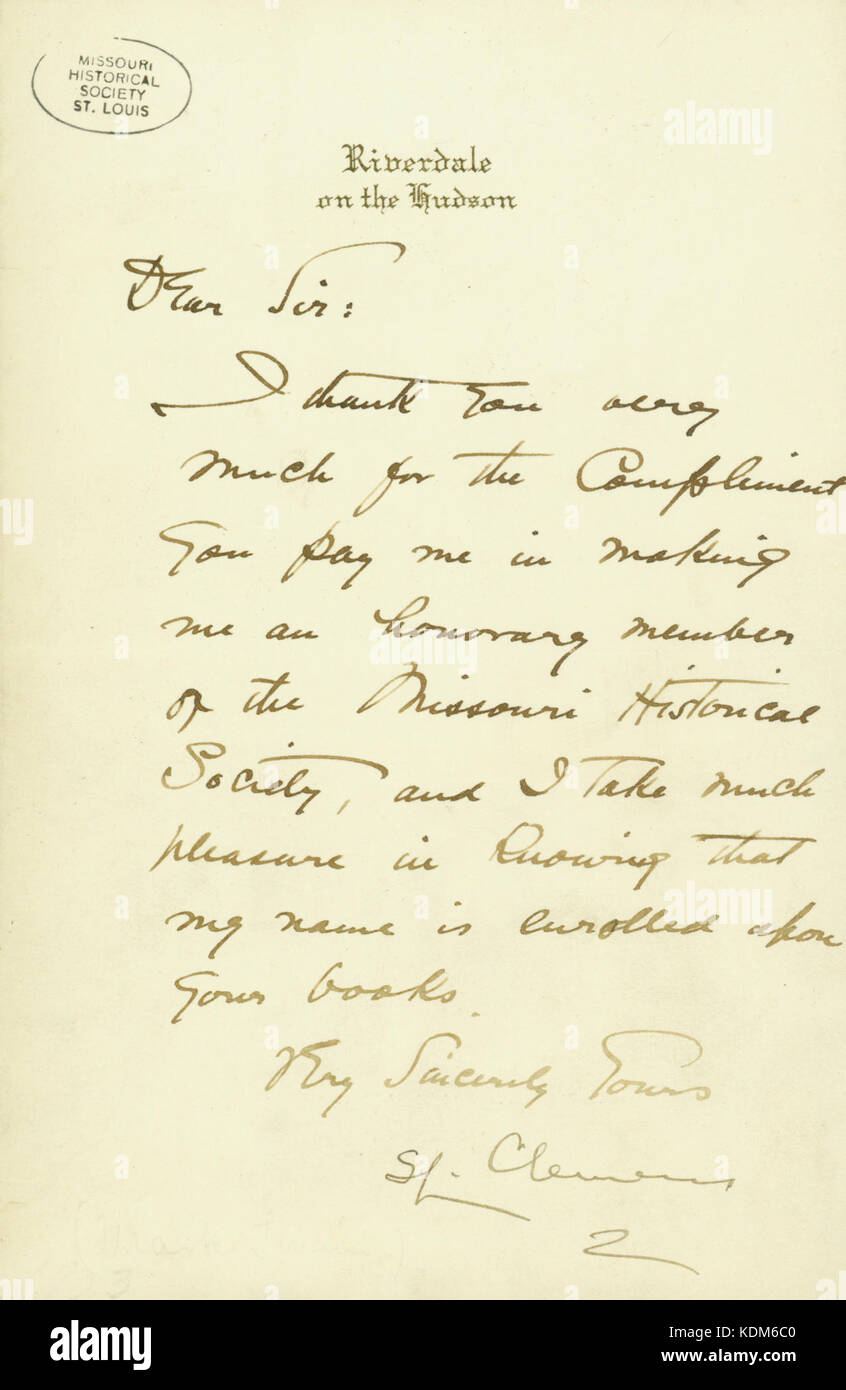 MISSOURI
HISTORICAL
SOCIETY
ST. LOUIS
alamy
Riverdale
on the Hudson
Dear Sir:
I thank you very
much for the Compliment
you pay me in making
me an honorary member
of the Missouri Historical
Society, and I take much
pleasure in knowing that
my name is enrolled upon
your books.
Very Sincerely Yours
SL. Clemens
2
alamy
Image ID: KDM6C0
www.alamy.com